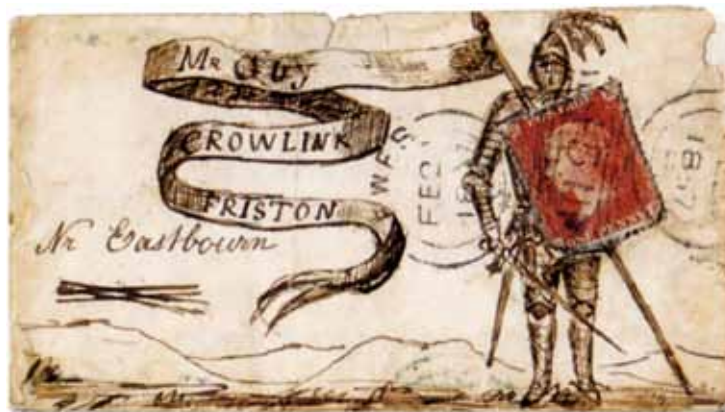 Mr Oby
CROWLINK
FRISTON
Nr Eastbourn
FE 21